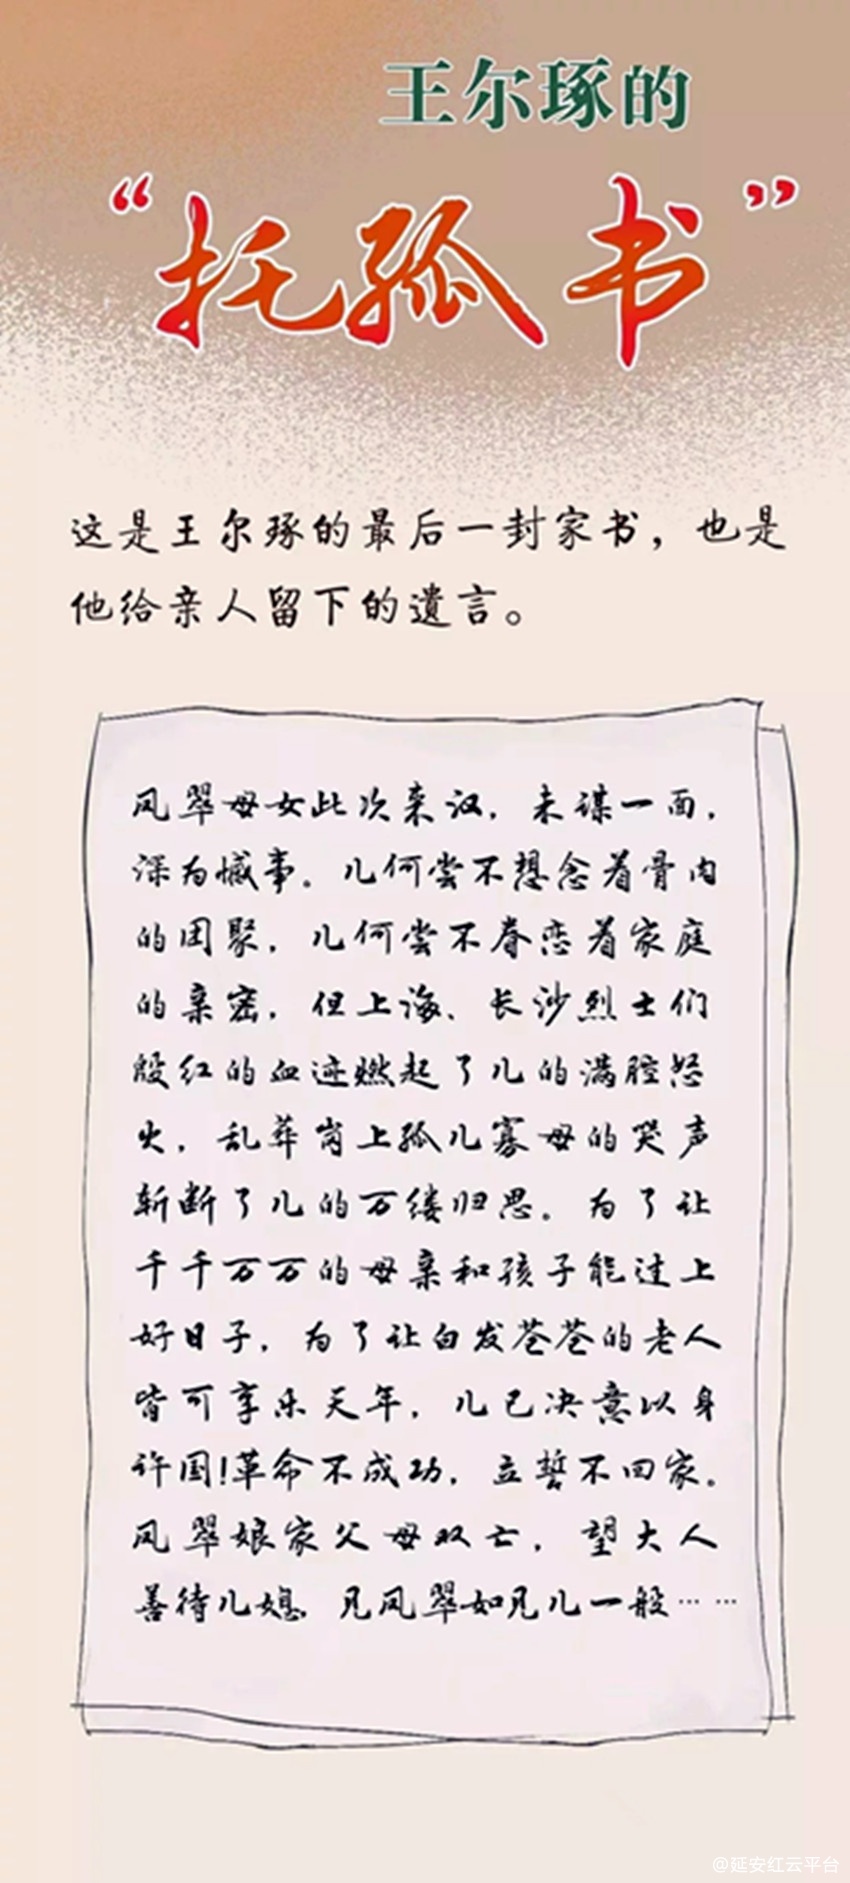 王尔琢的
“托孤书”
这是王尔琢的最后一封家书，也是
他给亲人留下的遗言。
凤翠母女此次来汉，未谋一面，
深为憾事。儿何尝不想念着骨肉
的团聚，儿何尝不眷恋着家庭
的亲密，但上海、长沙烈士们
殷红的血迹燃起了儿的满腔怒
火，乱葬岗上孤儿寡母的哭声
斩断了儿的万缕归思。为了让
千千万万的母亲和孩子能过上
好日子，为了让白发苍苍的老人
皆可享乐天年，儿已决意以身
许国！革命不成功，立誓不回家。
凤翠娘家父母双亡，望大人
善待儿媳，见凤翠如见儿一般……
@延安红云平台